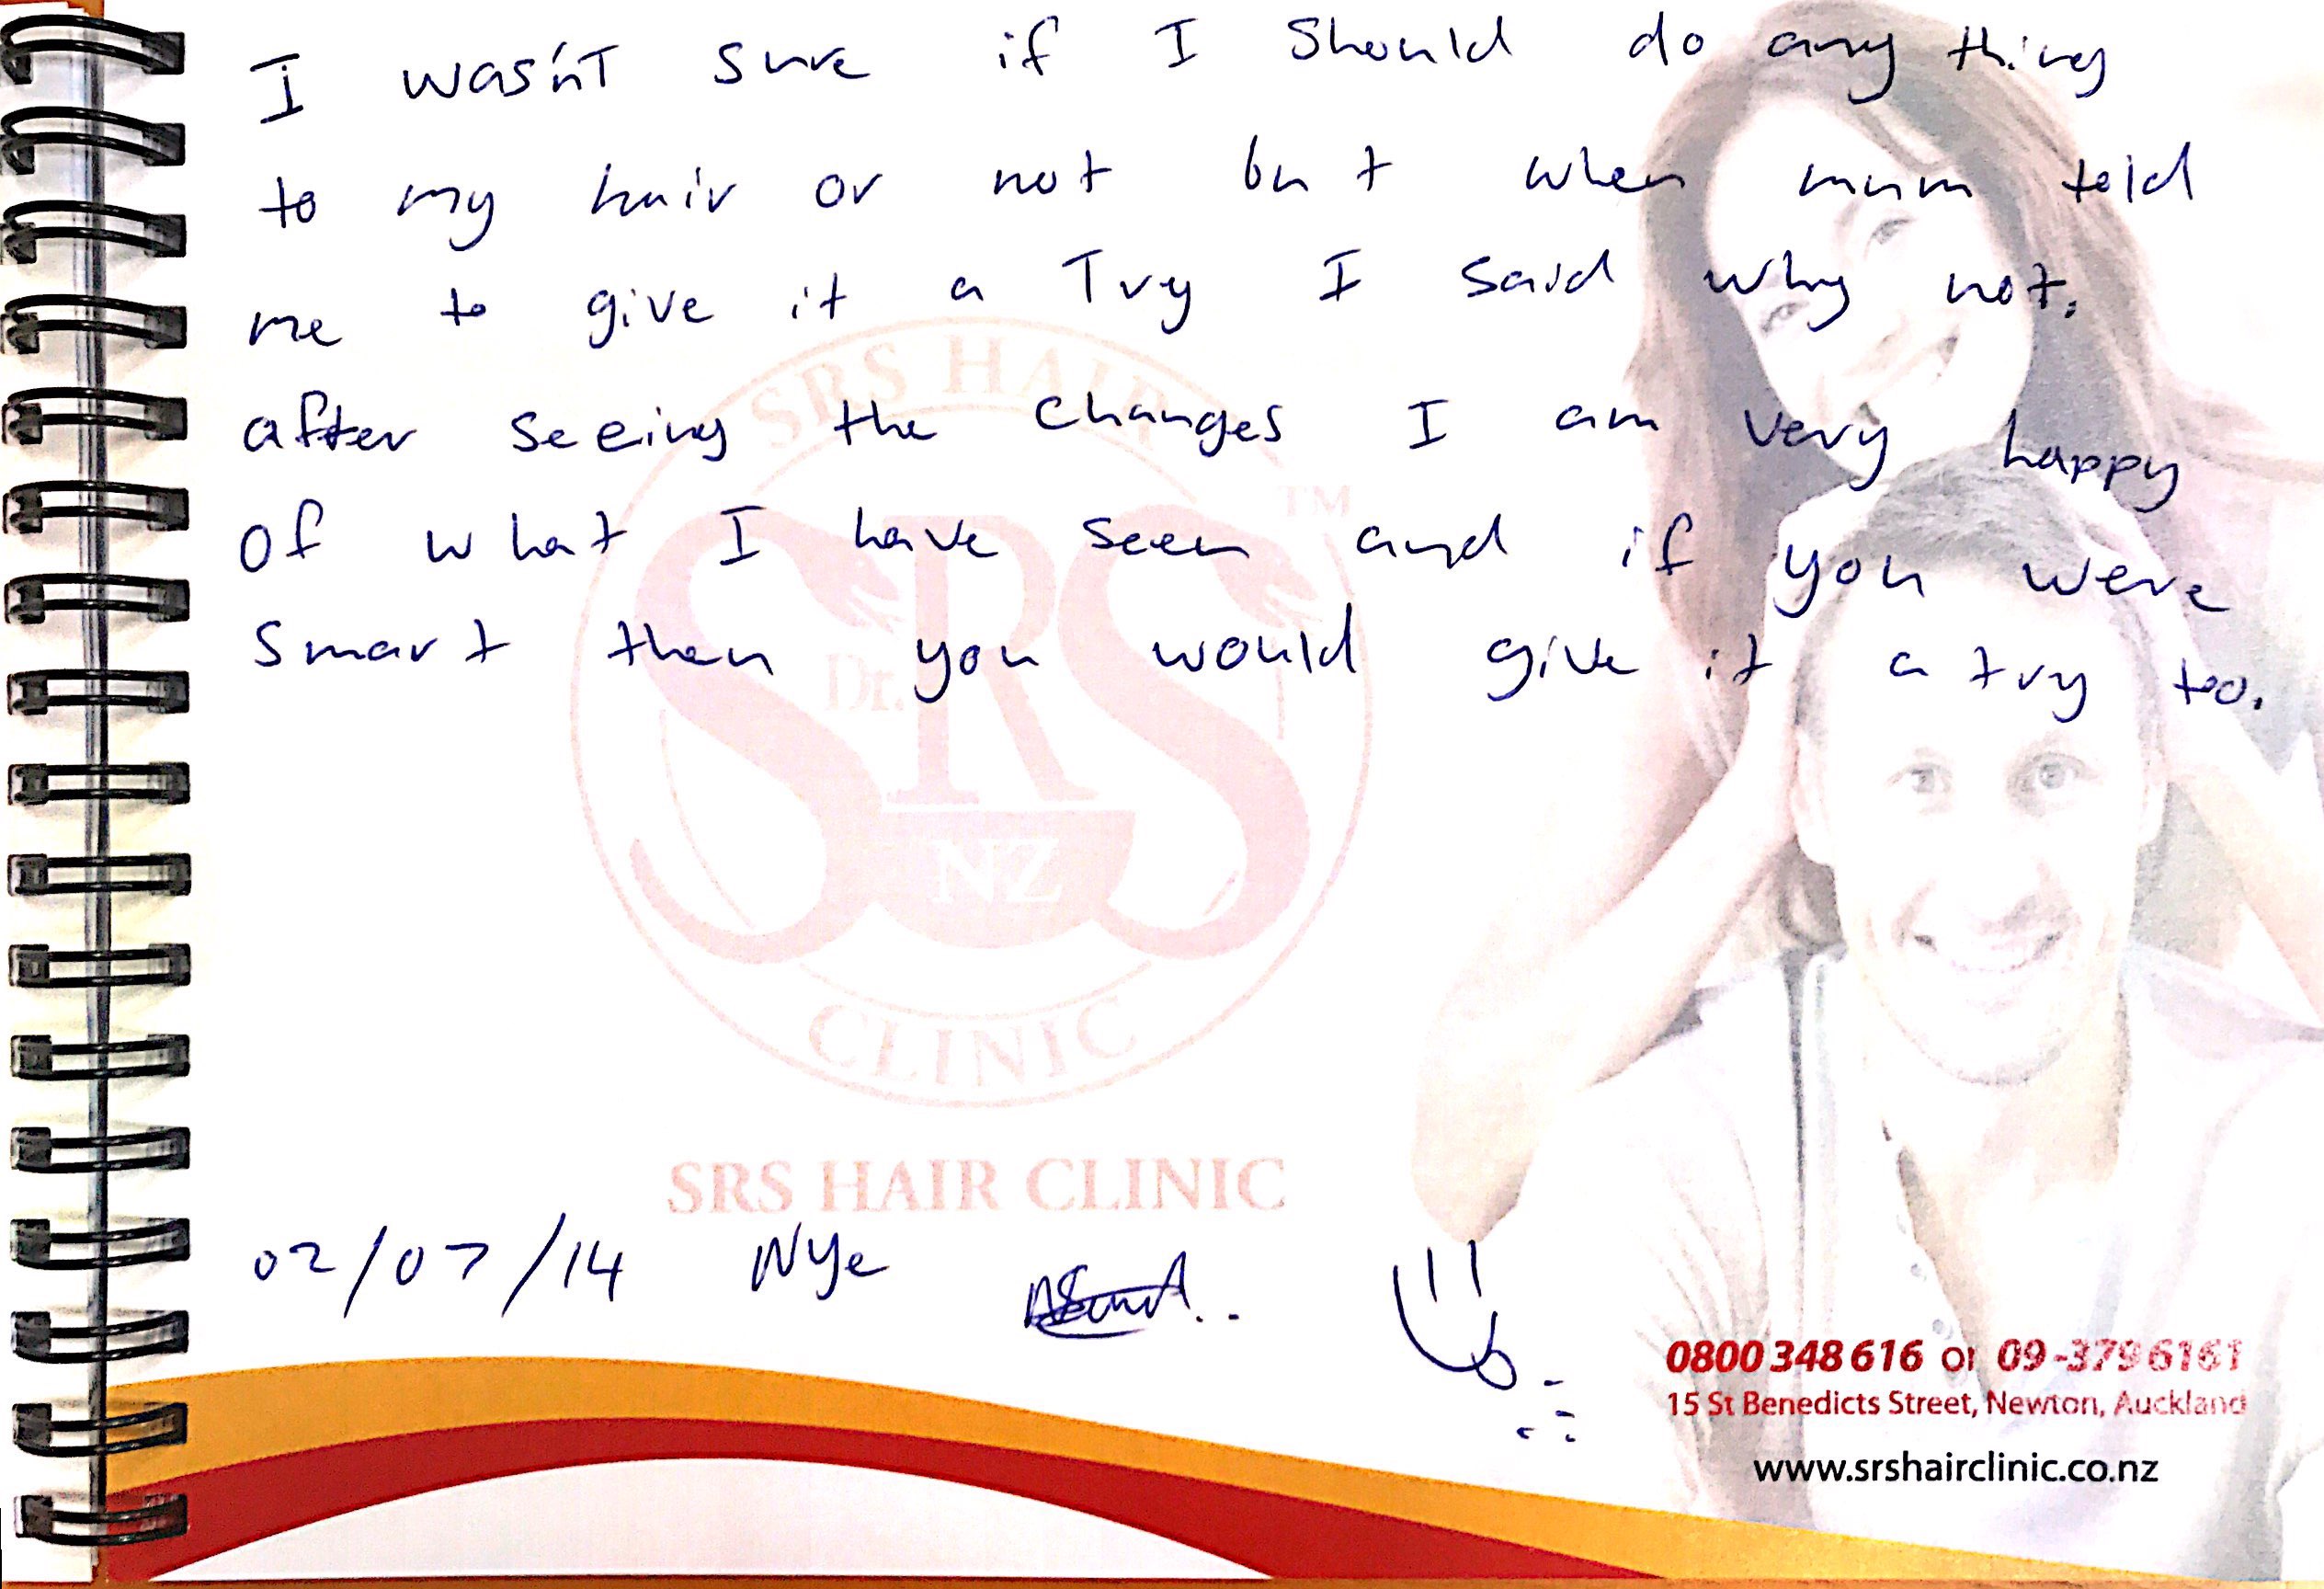 I wasn't sure if I should do any thing
to my hair or not but when mum told
me to give it a Try I said why not.
after seeing the changes I am very happy
of what I have seen and if you were
smart then you would give it a try too.
SRS HAIR
TM
Dr.
SRS
NZ
CLINIC
SRS HAIR CLINIC
02/07/14 Nye
0800 348 616 or 09-379 6161
15 St Benedicts Street, Newton, Auckland
www.srshairclinic.co.nz